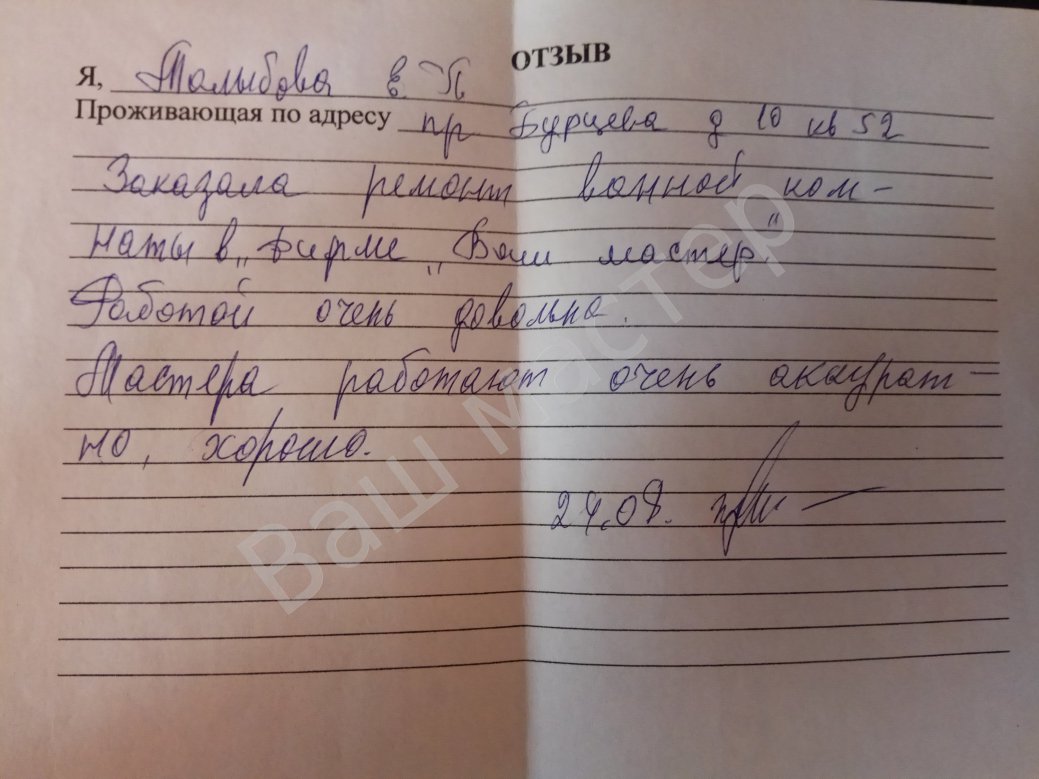 ОТЗЫВ
Я, Талыбова Е. П
Проживающая по адресу пр Бурцева д 10 кв 52
Заказала ремонт ванной ком-
наты в „фирме „Ваш мастер."
Работой очень довольна.
Мастера работают очень аккурат-
но, хорошо.
24.08.
Ваш мастер